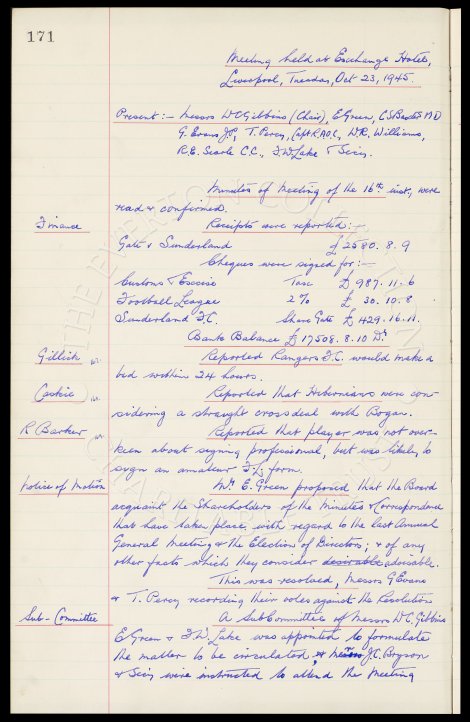 171
Meeting held at Exchange Hotel,
Liverpool, Tuesday, Oct 23, 1945.
Present :- Messrs W C Gibbins (Chair), E Green, C S Baxter MD
G. Evans J.P, T. Percy, Capt R, W.R. Williams,
R.E. Searle C.C., F.W Lake & Secy.
Minutes of Meeting of the 16th inst, were
read & confirmed.
Finance
Receipts were reported :-
Gate v Sunderland £ 2580. 8. 9
Cheques were signed for :-
Customs & Excise Tax £ 987. 11. 6
Football League 2% £ 30. 10. 8
Sunderland F.C. Share Gate £ 429. 16. 11.
Bank Balance £ 17508. 8. 10 Dr
Gillick
Reported Rangers F.C. would make a
bid within 24 hours.
Caskie
Reported that Hibernians were con-
sidering a straight cross deal with Bogan.
R Barker
Reported that player was not over-
keen about signing professional, but was likely to
sign an amateur F/L form.
Notice of Motion
Mr E. Green proposed that the Board
acquaint the Shareholders of the Minutes & Correspondence
that have taken place with regard to the last Annual
General Meeting & the Election of Directors; & of any
other facts which they consider desirable advisable.
This was resolved, Messrs G Evans
& T. Percy recording their votes against the Resolution
Sub-Committee
A SubCommittee of Messrs W C. Gibbins
E Green & F W. Lake was appointed to formulate
the matter to be circulated, & Messrs J.C. Bryson
& Secy were instructed to attend the meeting